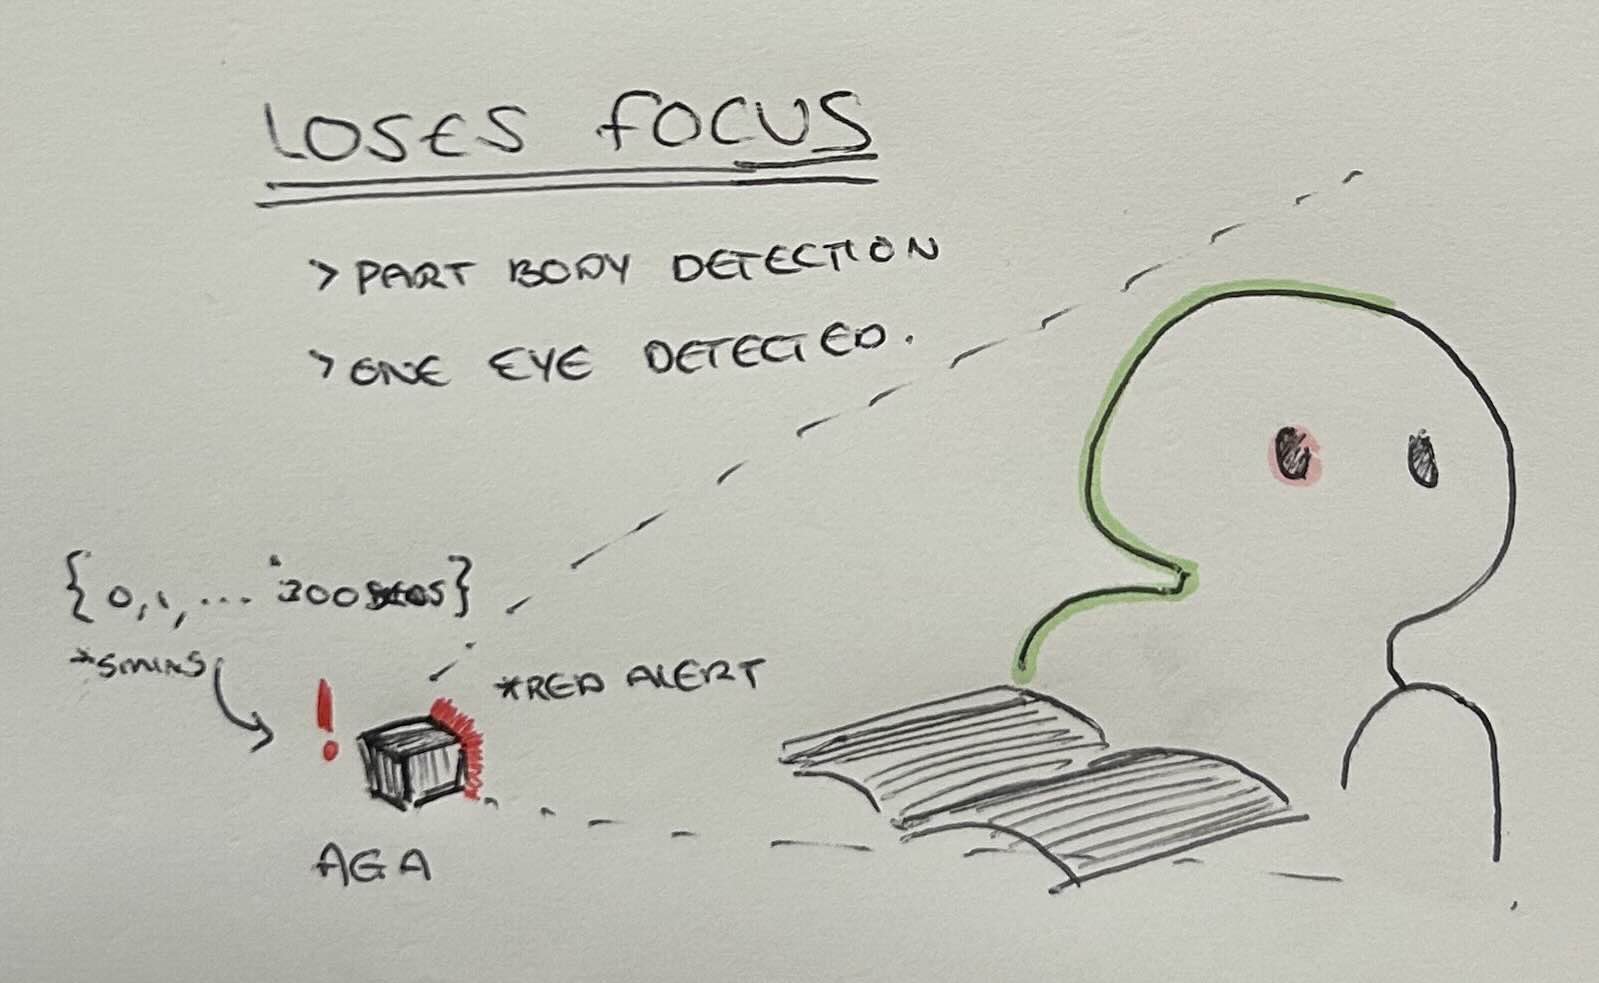 LOSES FOCUS
> PART BODY DETECTION
> ONE EYE DETECTED.
{0,1,... 300 secs}
*5mins
*RED ALERT
!
AGA